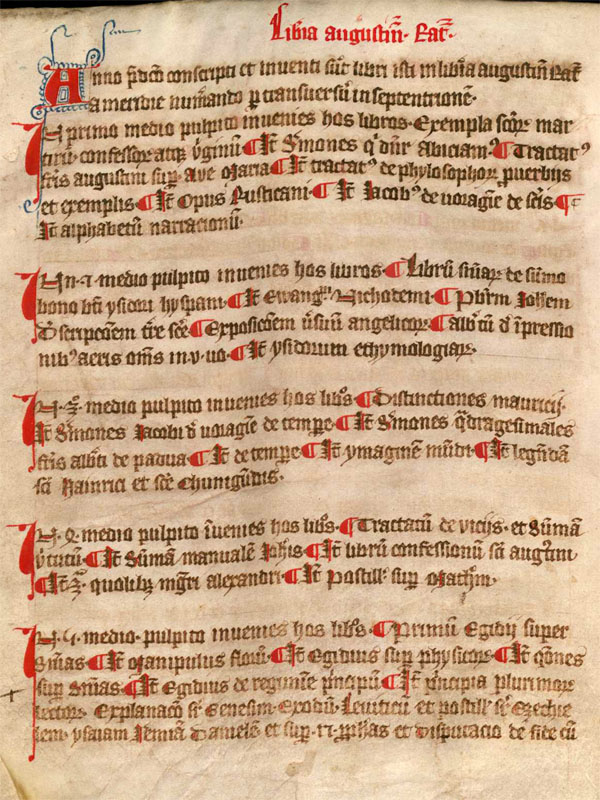 Libria augustin. Rat.
Anno p̄dcō conscripti et inventi sūt libri isti in libria augustin̄ Rat
a meridie nūmando p transuersū in septentrionē.
In primo medio pulpito invenies hos libros. Exempla scōꝝ mar
tirū confessoꝝ atqꝫ v̓ginū ¶ It̄ S̓mones q̄ dn̄r abiciam9 ¶ Tractat9
fr̄is augustini sup̱ Ave Maria ¶ It̄ tractat9 de phylosophoꝝ ꝓuerbijs
et exemplis ¶ It̄ Opus Rusticani ¶ It̄ Jacob9 de voragīe de scīs ¶
It̄ alphabetū narracionū.
In .2. medio pulpito invenies hos libros ¶ Librū sn̄iaꝝ de sūmo
bono bt̄i ysidori hyspani ¶ It̄ Ewangm̄ Nichodemi ¶ Pbrm̄ Joh̄em
D̓ scripcōem tr̄re scē ¶ Exposicōem v̓suū angelicoꝝ ¶ albtū d̓ īpressio
nib9 aeris om̄s in .v. uo ¶ It̄ ysidorum ethymologiaꝝ.
In .3. medio pulpito invenies hos libͦs ¶ Distinctiones mauricij.
It̄ S̓mones Jacobi d̓ voragīe de tempe ¶ It̄ S̓mones q̄dragesimales
fr̄is alb̓ti de padua ¶ It̄ de tempe ¶ It̄ ymaginem mūdi ¶ It̄ legēdā
scī Hainrici et scē Chunigūdis.
In .4. medio pulpito īvenies hos libͦs ¶ Tractatū de vicijs et Sūmā
v̓tutū ¶ It̄ Sūmā manualē Joh̄is ¶ It̄ librū confessionū scī augꝰtini
¶ It̄ quolibꝫ mgr̄i alexandri ¶ It̄ Postill̄ sup̱ Mach̄m.
In .5. medio pulpito invenies hos libͦs ¶ Primū Egidij super
Sn̄ias ¶ It̄ Manipulus floꝝ ¶ It̄ Egidius sup̱ physicoꝝ ¶ It̄ qōnes
sup̱ Sn̄ias ¶ It̄ Egidius de regimīe pn̄cipū ¶ It̄ pn̄cipia plurimoꝝ
lectoꝝ Explanacō sr̄ Genesim Exodū Leviticū et postill̄ sr̄ Ezechie
lem ysaiam Jeremiā Danielē et sup̱ .12. ꝓph̄as et Disputacio de fide cū